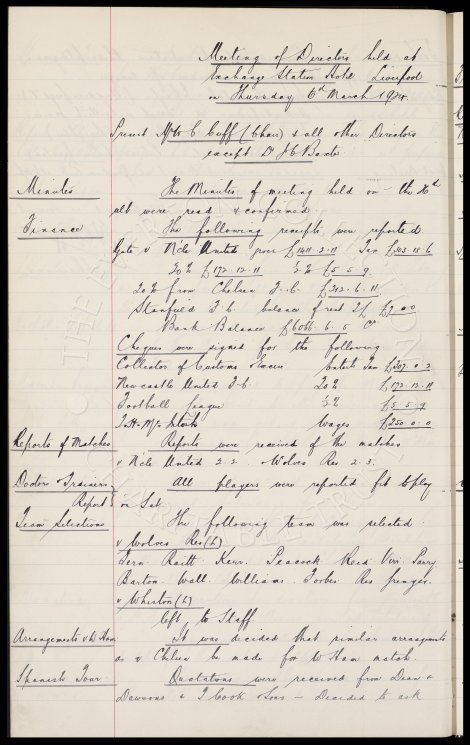 Meeting of Directors held at
Exchange Station Hotel Liverpool
on Thursday 6th March 1924.
Present Mr W C Cuff (Chair) & all other Directors
except Dr J C Baxter
Minutes
The Minutes of meeting held on the
ult were read & confirmed.
Finance
The following receipts were reported
Gate v N'cle United gross £1411.2.11 Tax
20% £172.12.11 ½% £5.5.9
20% from Chelsea F.C. £212.6.11
Stanfield F.C. balance of rent
Bank Balance £6066.6.5 Cr
Cheques were signed for the following
Collector of Customs & Excise Entert. Tax
Newcastle United F.C 20% £172.12.11
Football League ½% £5.5.9
Wages £250.0.0
Reports of Matches
Reports were received of the matches
v N'cle United 2.2 & Wolves Res 2.3.
Doctors & Trainers
Report
All players were reported fit to play
on Sat.
Team Selections
The following team was selected
v Wolves Res (H)
Fern. Raitt. Kerr. Peacock. Reid. Virr. Parry
Barton. Wall. Williams. Forbes. Res
v Whiston (H)
left to Staff
Arrangements v W Ham
It was decided that similar arrangements
as v Chelsea be made for W Ham match.
Spanish Tour
Quotations were received from Dean &
Dawsons & T Cook & Sons – Decided to ask